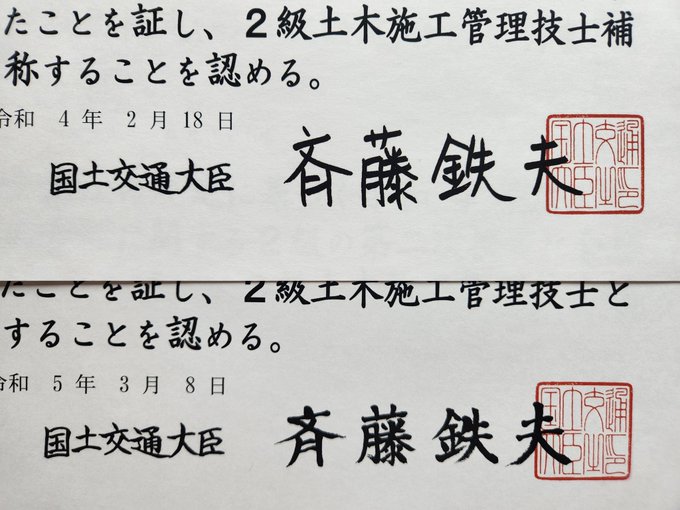 たことを証し、２級土木施工管理技士補
称することを認める。
令和 4 年 2 月 18 日
国土交通大臣 斉藤鉄夫
たことを証し、２級土木施工管理技士と
することを認める。
令和 5 年 3 月 8 日
国土交通大臣 斉藤鉄夫